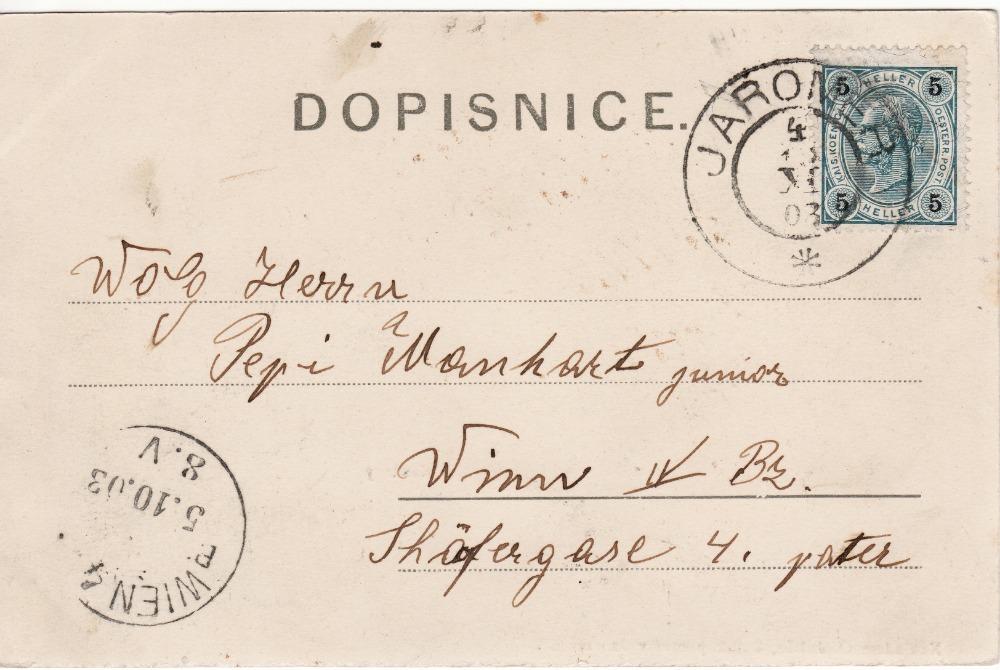 DOPISNICE.
JAROMĚŘ
4
XI
03
5 HELLER 5
KAIS. KOEN. OESTERR. POST
5 HELLER 5
Herrn
Pepi Mankart junior
Winn IV Bz.
Shäfergase 4. pater
8.V
5.10.03
WIEN 4